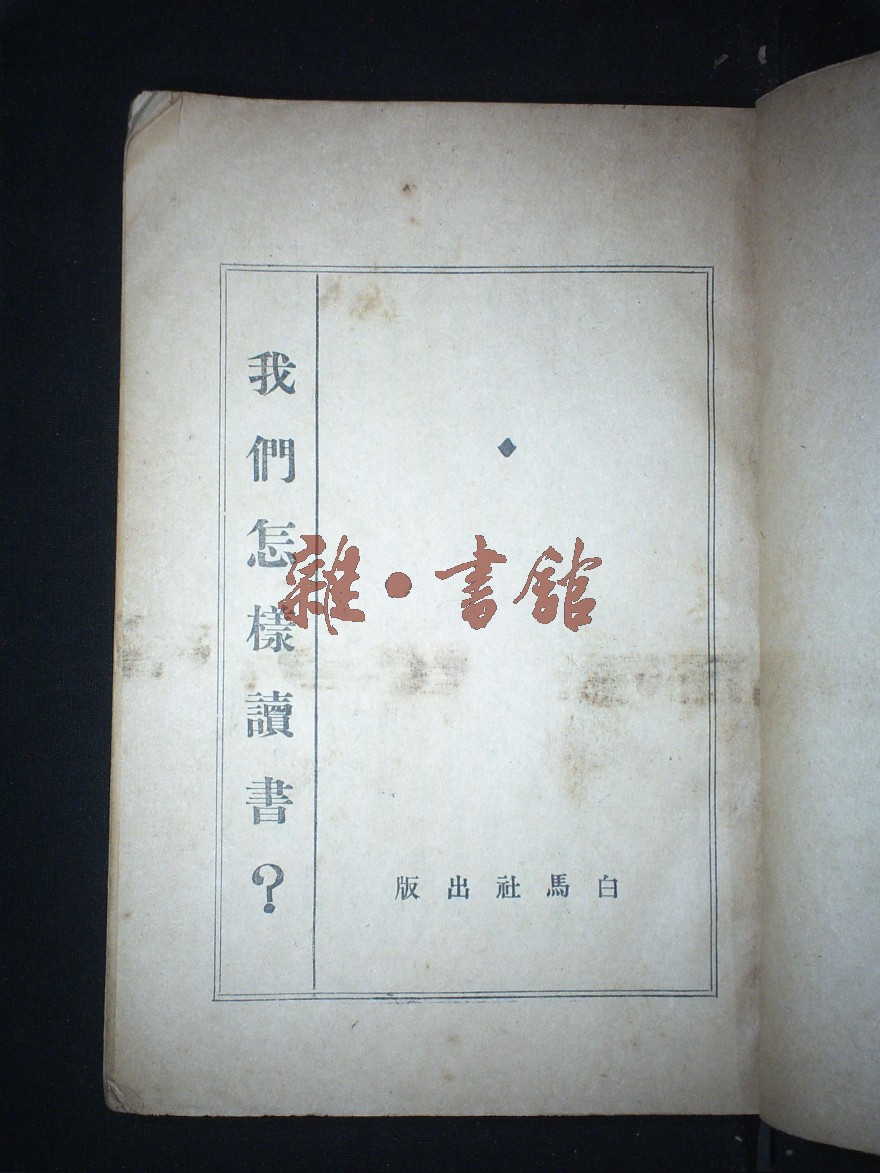 我們怎樣讀書？
雜·書館
白馬社出版